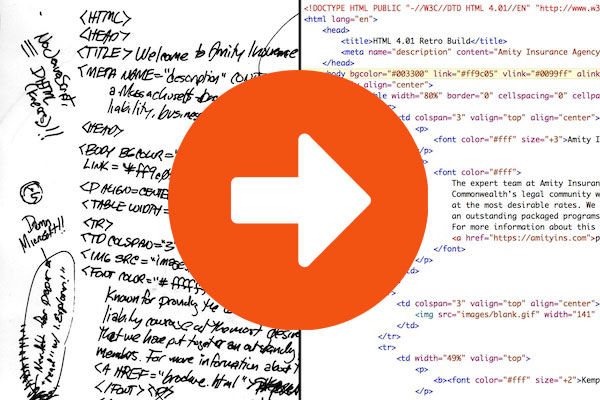 <HTML>
<HEAD>
<TITLE> Welcome to Amity Insurance
<META NAME="description" CONT
a Massachusett
liability, busines
<HEAD>
<BODY BGCOLOR="
LINK="#ff9c0
<P ALIGN=CENTE
<TABLE WIDTH=
<TR>
<TD COLSPAN="3
<IMG SRC="images
<FONT COLOR="#fffff
Known for providing the
liability coverage at the most desire
that we have put together an outstandin
members. For more information about t
<A HREF="brochure.html">
</FONT> <P>
No JavaScript,
DHTML
Damn
Microsoft!!
<!DOCTYPE HTML PUBLIC "-//W3C//DTD HTML 4.01//EN" "http://www.w3
<html lang="en">
<head>
<title>HTML 4.01 Retro Build</title>
<meta name="description" content="Amity Insurance Agency
</head>
body bgcolor="#003300" link="#ff9c05" vlink="#0099ff" alink
align="center">
le width="80%" border="0" cellspacing="0" cellpa
td colspan="3" valign="top" align="center">
<p>
<font color="#fff" size="+3">Amity I
<p>
<font color="#fff">
The expert team at Amity Insuran
Commonwealth's legal community w
at the most desirable rates. We
an outstanding packaged programs
For more information about this
<a href="https://amityins.com">p
</font>
</p>
</td>
<tr>
<td colspan="3" valign="top" align="center">
<img src="images/blank.gif" width="141"
</td>
</tr>
<tr>
<td width="49%" valign="top">
<p>
<b><font color="#fff" size="+2">Kemp
</p>